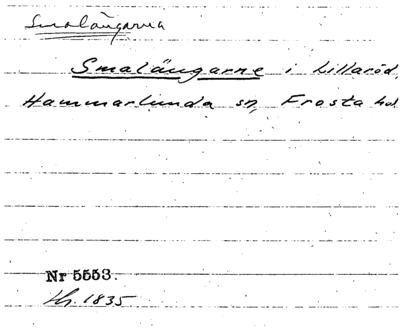 Smalängarna
Smalängarne i Lillaröd,
Hammarlunda sn, Frosta hd
Nr 5553.
Hr. 1835